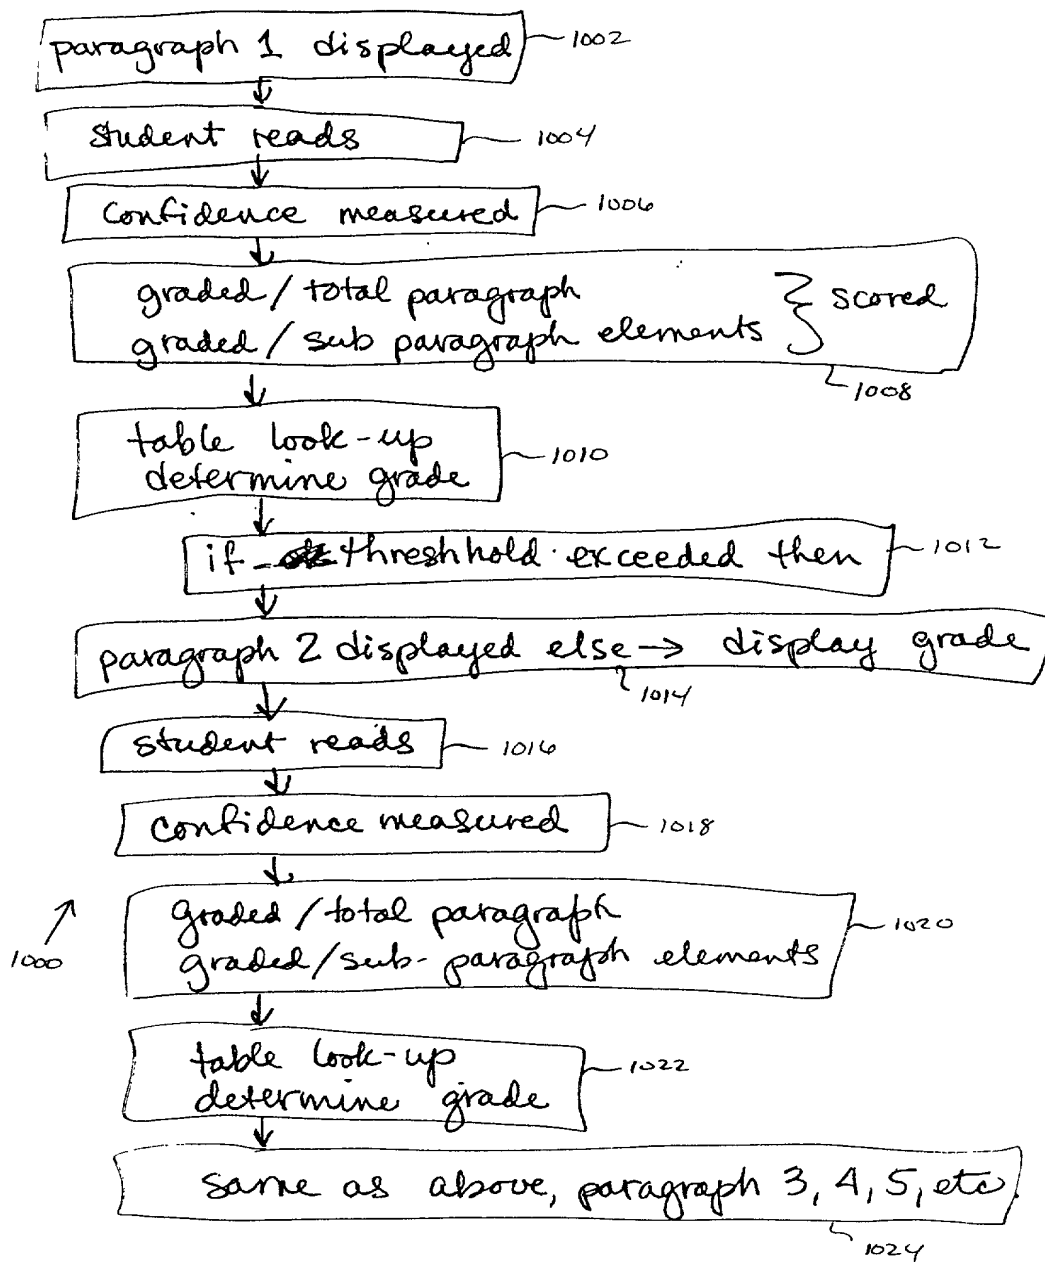 paragraph 1 displayed 1002
student reads 1004
confidence measured 1006
graded / total paragraph
graded / sub paragraph elements } scored
1008
table look-up
determine grade 1010
if threshhold exceeded then 1012
paragraph 2 displayed else → display grade
1014
student reads 1016
confidence measured 1018
graded / total paragraph
graded/sub-paragraph elements 1020
1000
table look-up
determine grade 1022
same as above, paragraph 3, 4, 5, etc.
1024